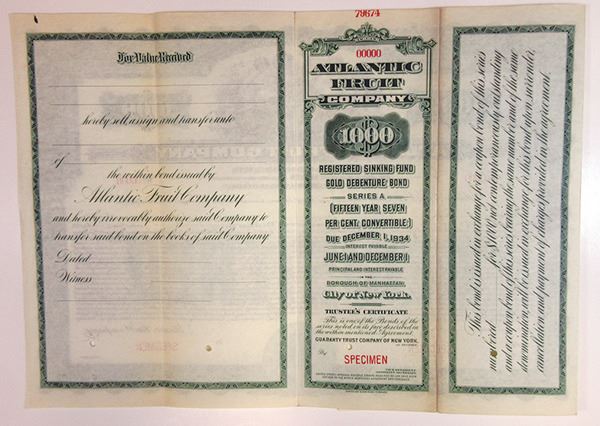 79674
For Value Received
hereby sell, assign and transfer unto
of
the within bond issued by
Atlantic Fruit Company
and hereby irrevocably authorize said Company to
transfer said bond on the books of said Company.
Dated
Witness
00000
ATLANTIC
FRUIT
COMPANY.
$1000
REGISTERED SINKING FUND
GOLD DEBENTURE BOND
SERIES A
(FIFTEEN YEAR SEVEN
PER CENT. CONVERTIBLE)
DUE DECEMBER 1, 1934
INTEREST PAYABLE
JUNE 1 AND DECEMBER 1
PRINCIPAL AND INTEREST PAYABLE
IN THE
BOROUGH OF MANHATTAN,
City of New York.
TRUSTEE'S CERTIFICATE
This is one of the Bonds of the
series noted on its face described in
the within mentioned Agreement.
GUARANTY TRUST COMPANY OF NEW YORK,
By
SPECIMEN
This bond is issued in exchange for a coupon bond of this series
numbered for $1,000 not contemporaneously outstanding
and a coupon bond of this series bearing the same number and of the same
denomination, will be issued in exchange for this bond upon surrender,
cancellation and payment of charges, provided in the agreement.